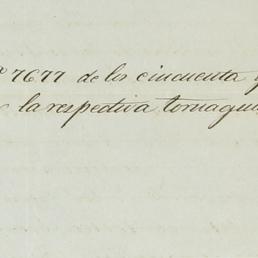 7677 de los cincuenta y
la respectiva tornagui